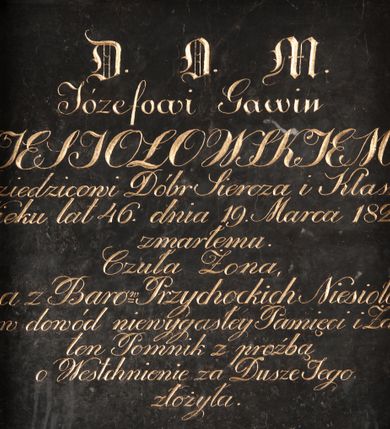 D. D. M.
Józefowi Gawin
IESIOŁOWSKIEM
ziedzicowi Dóbr Siercza i Klas
ieku lat 46. dnia 19. Marca 182
zmarłemu.
Czuła Zona,
a z Baro Przychockich Niesioł
w dowód niewygasłey Pamięci i Za
ten Pomnik z prożbą
o Westchnienie za Dusze Jego
złożyła.